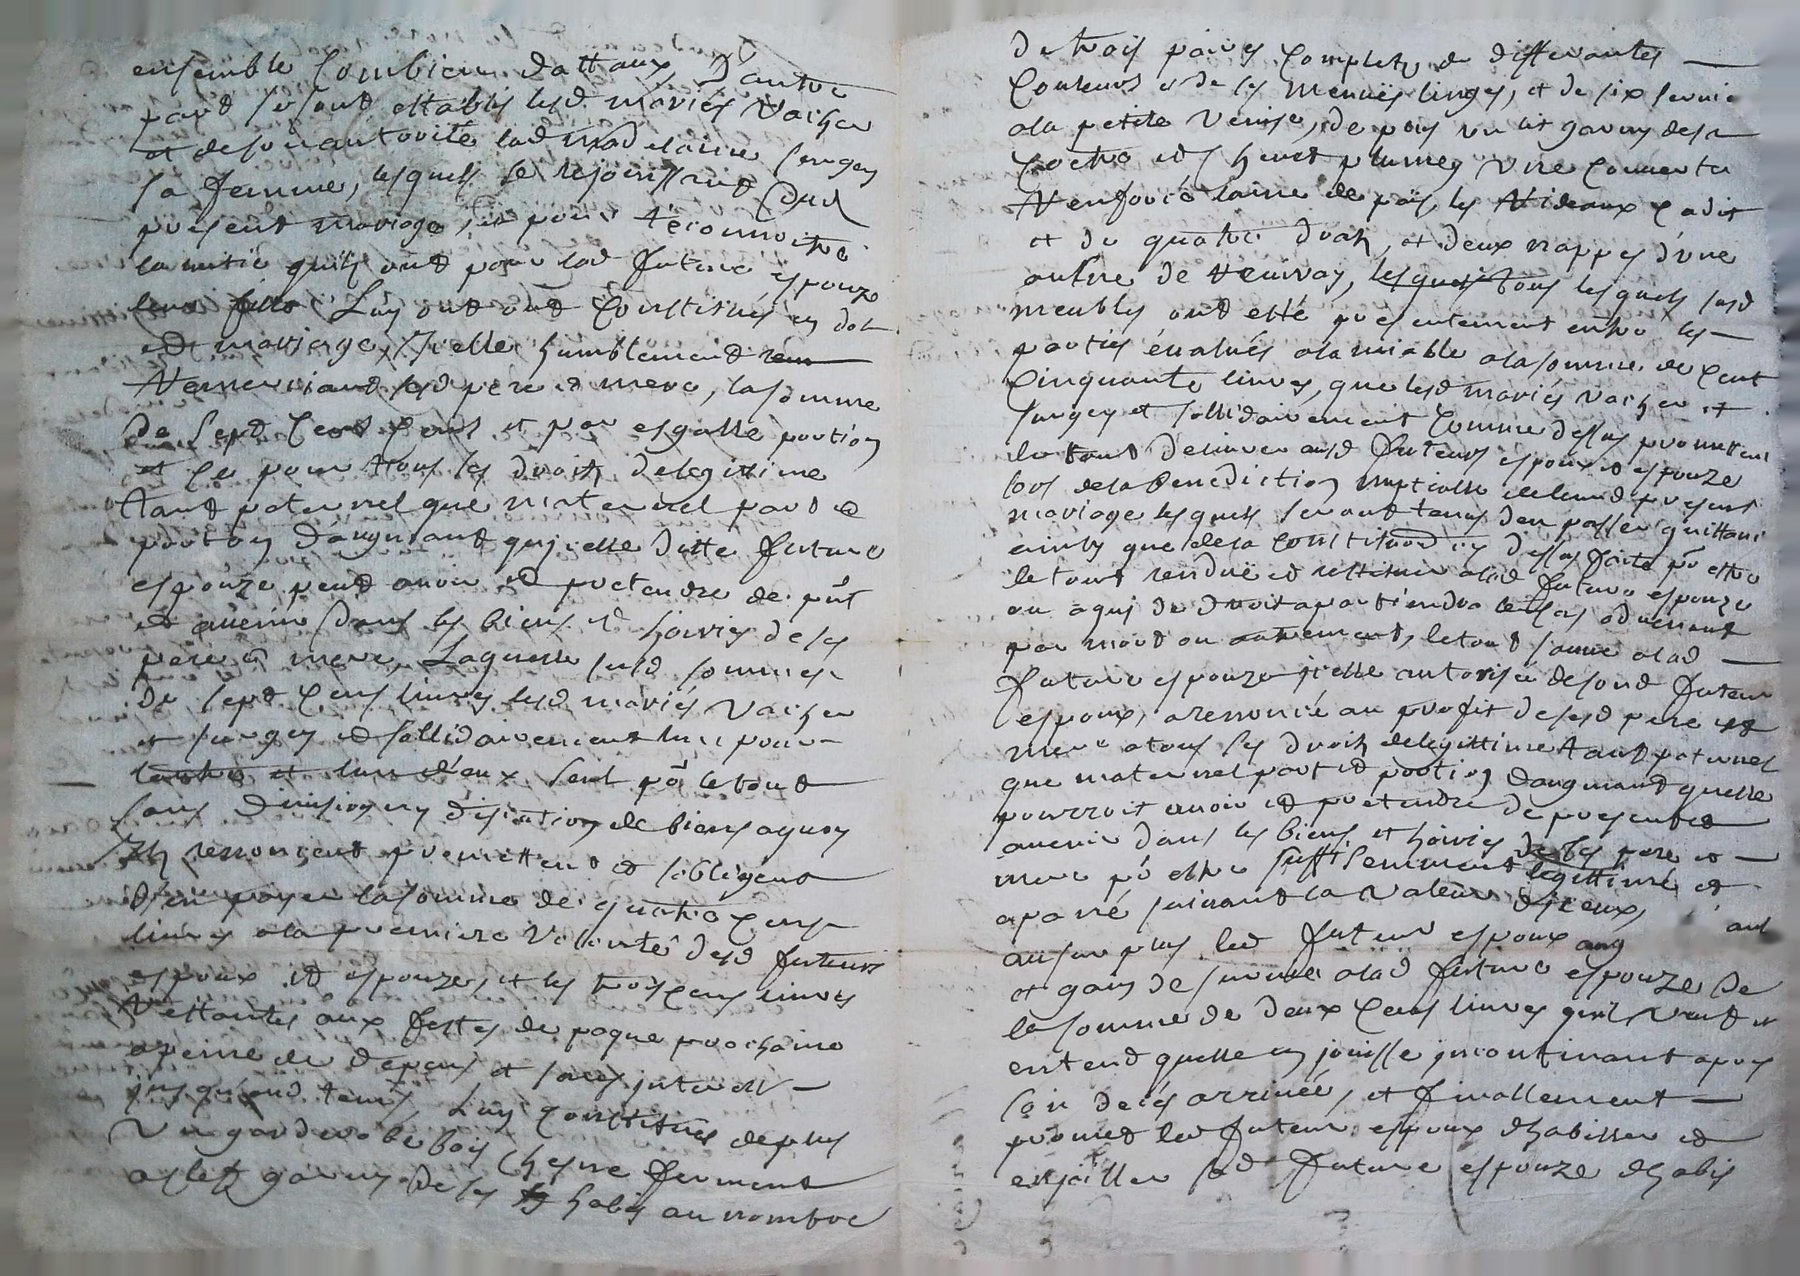 ensemble combien d'attaux, D'autre
part se sont establis lesd mariés Vacher
et de son autorité lad madelaine surgey
sa femme, lesquels se rejouissant dud
present mariage, et pour reconnoitre
lamitié quils ont pour lad future espouze
leur fille Luy ont ont constitués en dot
et mariage, Icelle humblement rem
Remerciant sesd pere et mere, la somme
De sept cens livres et par esgalle portion
et ce pour tous les droits delegitime
tant paternel que maternel part et
portion daugmant qu'icelle ditte future
espouze peut avoir et pretendre de pnt
et avenir dans les biens et hoiries de ses
pere et mere, Laquelle susd somme
de sept cens livres lesd mariés Vacher
et surgey et sollidairement lun pour
lautre et lun d'eux seul po le tout
sans division ny discution de biens aquoy
Ils renoncent promettent et sobligent
d'en payer la somme de quatre cens
livres a la premiere volonté desd futeurs
espoux et espouze, et les trois cens livres
Restantes aux festes de paque prochaine
a peine de depens et sans interest
jusquaud temps, Luy constitués de plus
Un garderobe bois chesne fermant
a clef garny de ses habis au nombre
de trois paires complets de differantes
couleurs et de ses menues linges, et de six servie
a la petite Venise, de plus un lit garny de sa
coetre et chevet plumes une couverte
laine de païs, les Rideaux cadis
et de quatre draps, et deux nappes d'une
aulne de lesquels tous lesquels susd
meubles ont esté presentement entre les
parties évalués a lamiable a la somme de cent
cinquante livres, que lesd mariés vacher et
surgey et sollidairement comme dessus promettent
le tout delivrer ausd futeurs espoux et espouze
lors de la Benediction nuptialle de leurd present
mariage lesquels seront tenus d'en passer quittance
ainsy que de la constitution cy dessus faite po estre
le tout rendue et restitué a lad future espouze
ou a qui de droit apartiendra le cas advenant
par mort ou autrement, le tout sauve a lad
future espouze icelle autorisée de sond futeur
espoux, a renoncé au profit de sesd pere et
mere a tous ses droits delegittime tant paternel
que maternel part et portion daugmant quelle
pourroit avoir et pretendre de present et
avenir dans les biens et hoiries de ses pere et
mere po estre suffisemment legittimé et
aparié suivant la valeur d'iceux,
au surplus led futeur espoux aug
et gain de survie a lad future espouze de
la somme de deux cens livres quil veut et
entend quelle en jouisse incontinant apres
son decés arrivée, et finallement
promet led futeur espoux d'habiller et
enjoiller sad future espouze d'habis